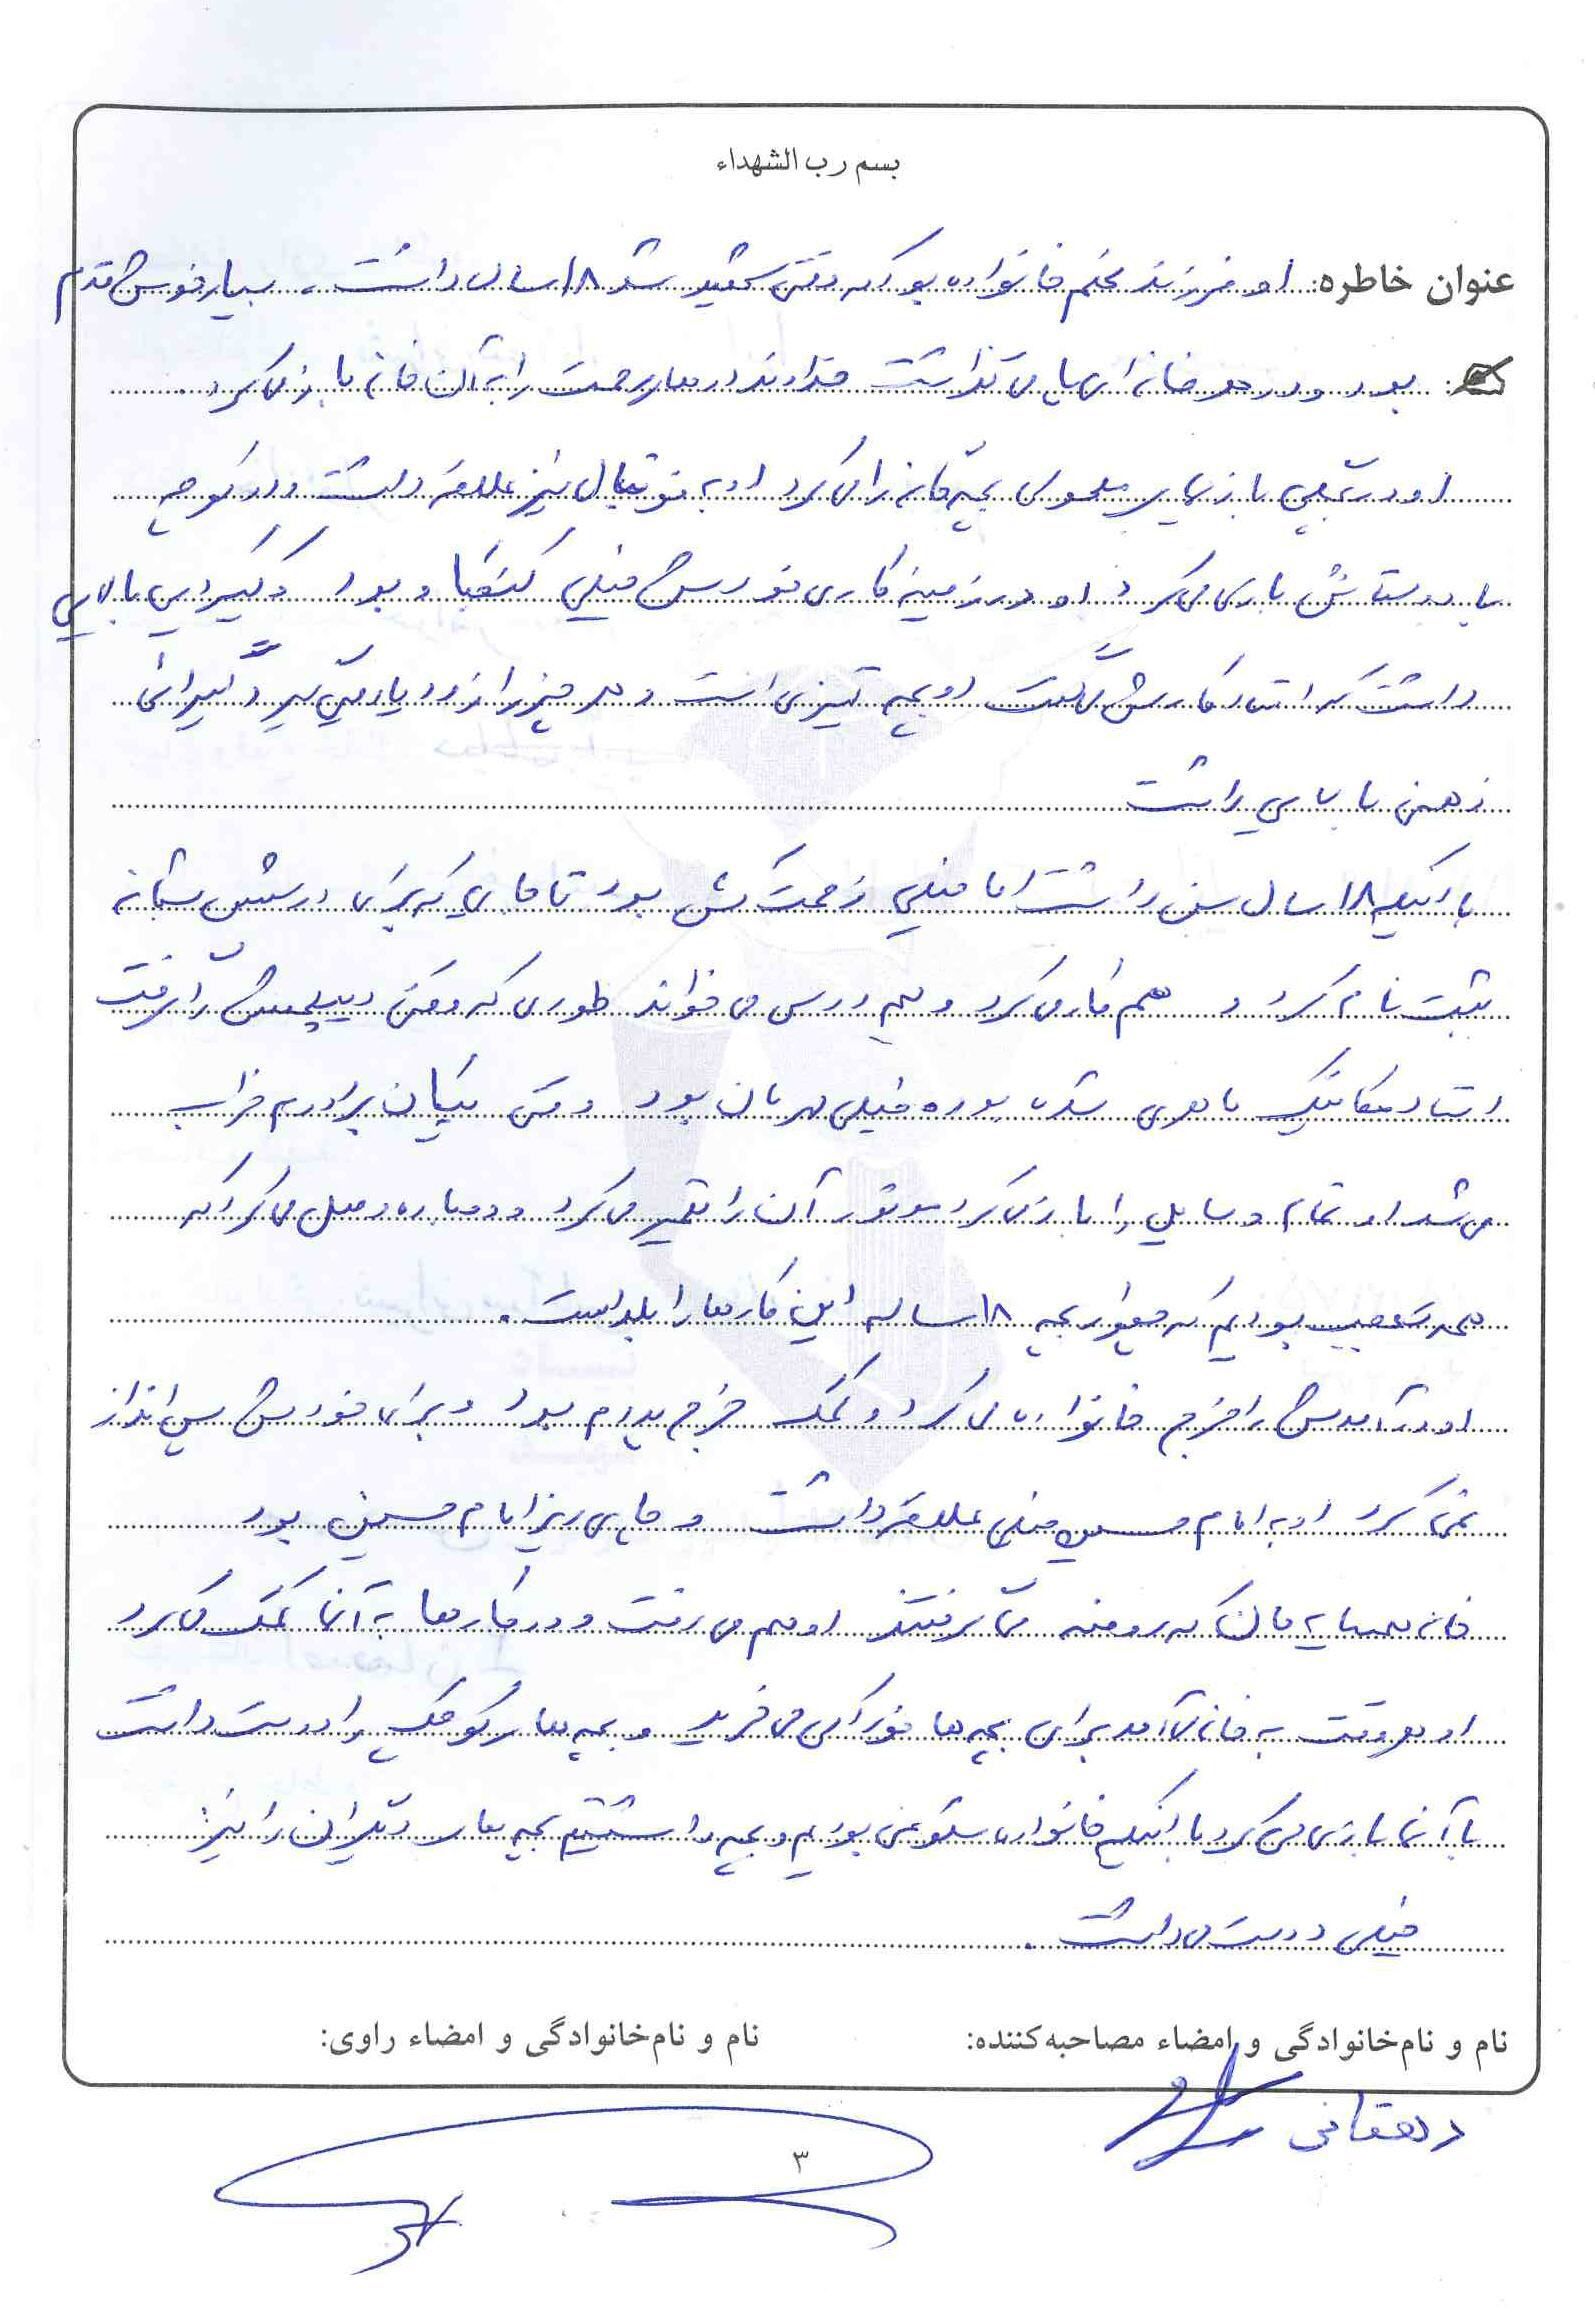 بسم رب الشهداء
عنوان خاطره: او فرزند پنجم خانواده بود که وقتی شهید شد ۱۸ سال داشت. بسیار خوش قدم
بود و در هر خانه ای پا می گذاشت خداوند درهای رحمت را به آن خانه باز می کرد.
او در بچگی بازیهای معمولی بچه گانه را می کرد او به فوتبال نیز علاقه داشت و در کوچه
با دوستانش بازی می کرد او در زمینه کاری خودش خیلی کنجکاو بود و گیرایی بالایی
داشت که استاد کارش می گفت او بچه تیزی است و هر چیز را زود یاد می گیرد و گیرایی
ذهن بالایی داشت
با اینکه ۱۸ سال سن داشت اما خیلی زحمت کش بود تا جایی که برای درسش شبانه
ثبت نام کرد و هم کار می کرد و هم درس می خواند طوری که وقتی دیپلمش را گرفت
استاد مکانیک ماهری شده بود و خیلی مهربان بود وقتی پیکان برادرم خراب
می شد او تمام وسایل را باز می کرد موتور آن را تعمیر می کرد و دوباره وصل می کرد که
همه متعجب بودیم که چطور بچه ۱۸ ساله این کارها را بلد است.
او درآمدش را خرج خانواده می کرد و کمک خرج پدرم بود و برای خودش پس انداز
نمی کرد او به امام حسین خیلی علاقه داشت و چای ریز امام حسین بود
خانه همسایه مان که روضه می گرفتند او هم می رفت و در کارها به آنها کمک می کرد
او هر وقت به خانه می آمد برای بچه ها خوراکی می خرید و بچه های کوچک را دوست داشت
با آنها بازی می کرد با اینکه خانواده شلوغی بودیم و بچه داشتیم بچه های دیگران را نیز
خیلی دوست می داشت.
نام و نام‌خانوادگی و امضاء مصاحبه‌کننده: نام و نام‌خانوادگی و امضاء راوی:
دهقانی
۳